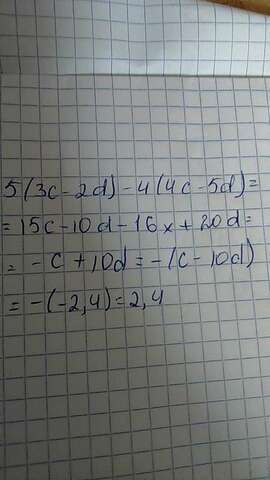 5(3c-2d)-4(4c-5d)=
=15c-10d-16x+20d=
= -c+10d=-(c-10d)
=-(-2,4)=2,4